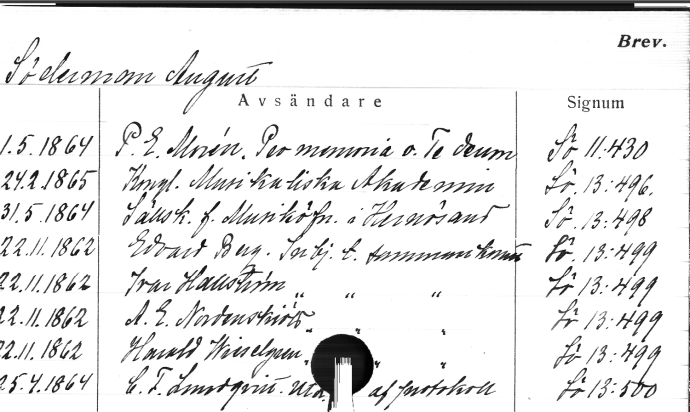 Brev.
Söderman August
Avsändare Signum
1.5.1864 P. E. Morén. Pro memoria o. Te deum Sö 11:430
24.2.1865 Kongl. Musikaliska Akademin Sö. 13:496.
31.5.1864 Sällsk. f. Musiköfn. i Hernösand Sö. 13:498
22.11.1862 Edvard Berg. Inbj. t. sammankomst Sö. 13:499
22.11.1862 Ivar Hallström „ „ „ Sö 13:499
22.11.1862 A. E. Nordenskiöld „ „ „ Sö 13:499
22.11.1862 Harald Wieselgren „ „ Sö 13:499
25.4.1864 C. F. af protokoll Sö 13:500